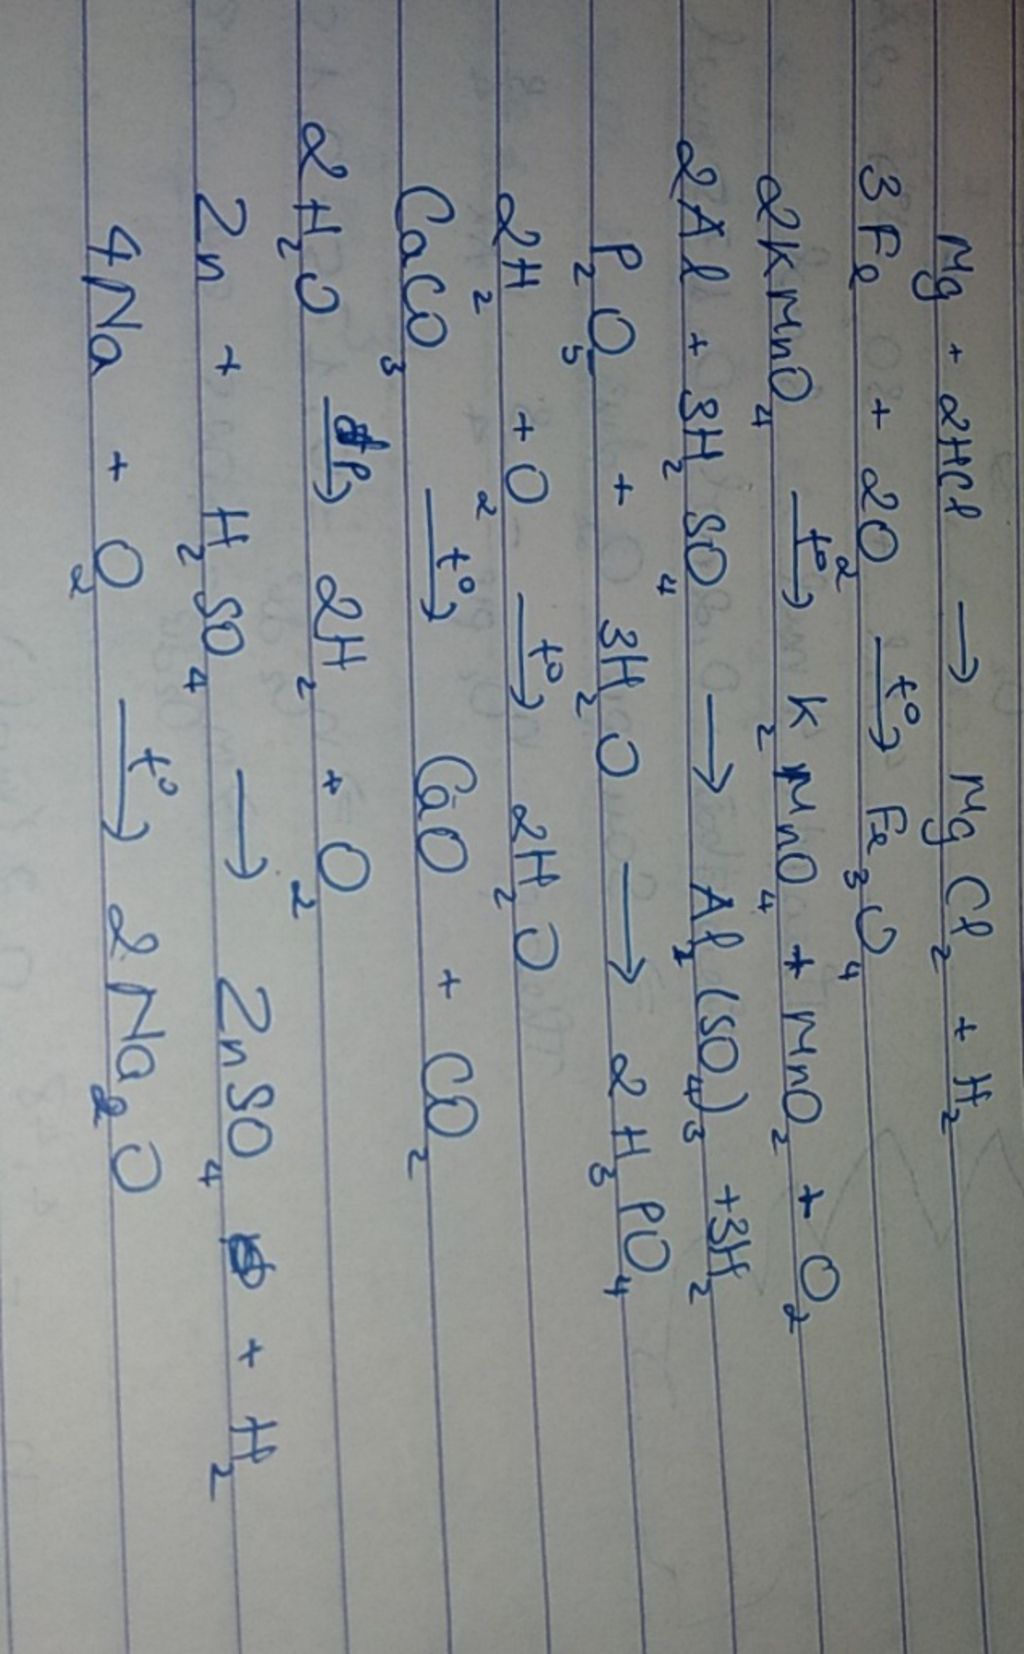 Mg + 2HCl → MgCl₂ + H₂
3Fe + 2O₂ →t° Fe₃O₄
2KMnO₄ →t° K₂MnO₄ + MnO₂ + O₂
2Al + 3H₂SO₄ → Al₂(SO₄)₃ + 3H₂
P₂O₅ + 3H₂O → 2H₃PO₄
2H₂ + O₂ →t° 2H₂O
CaCO₃ →t° CaO + CO₂
2H₂O →đp 2H₂ + O₂
Zn + H₂SO₄ → ZnSO₄ + H₂
4Na + O₂ →t° 2Na₂O